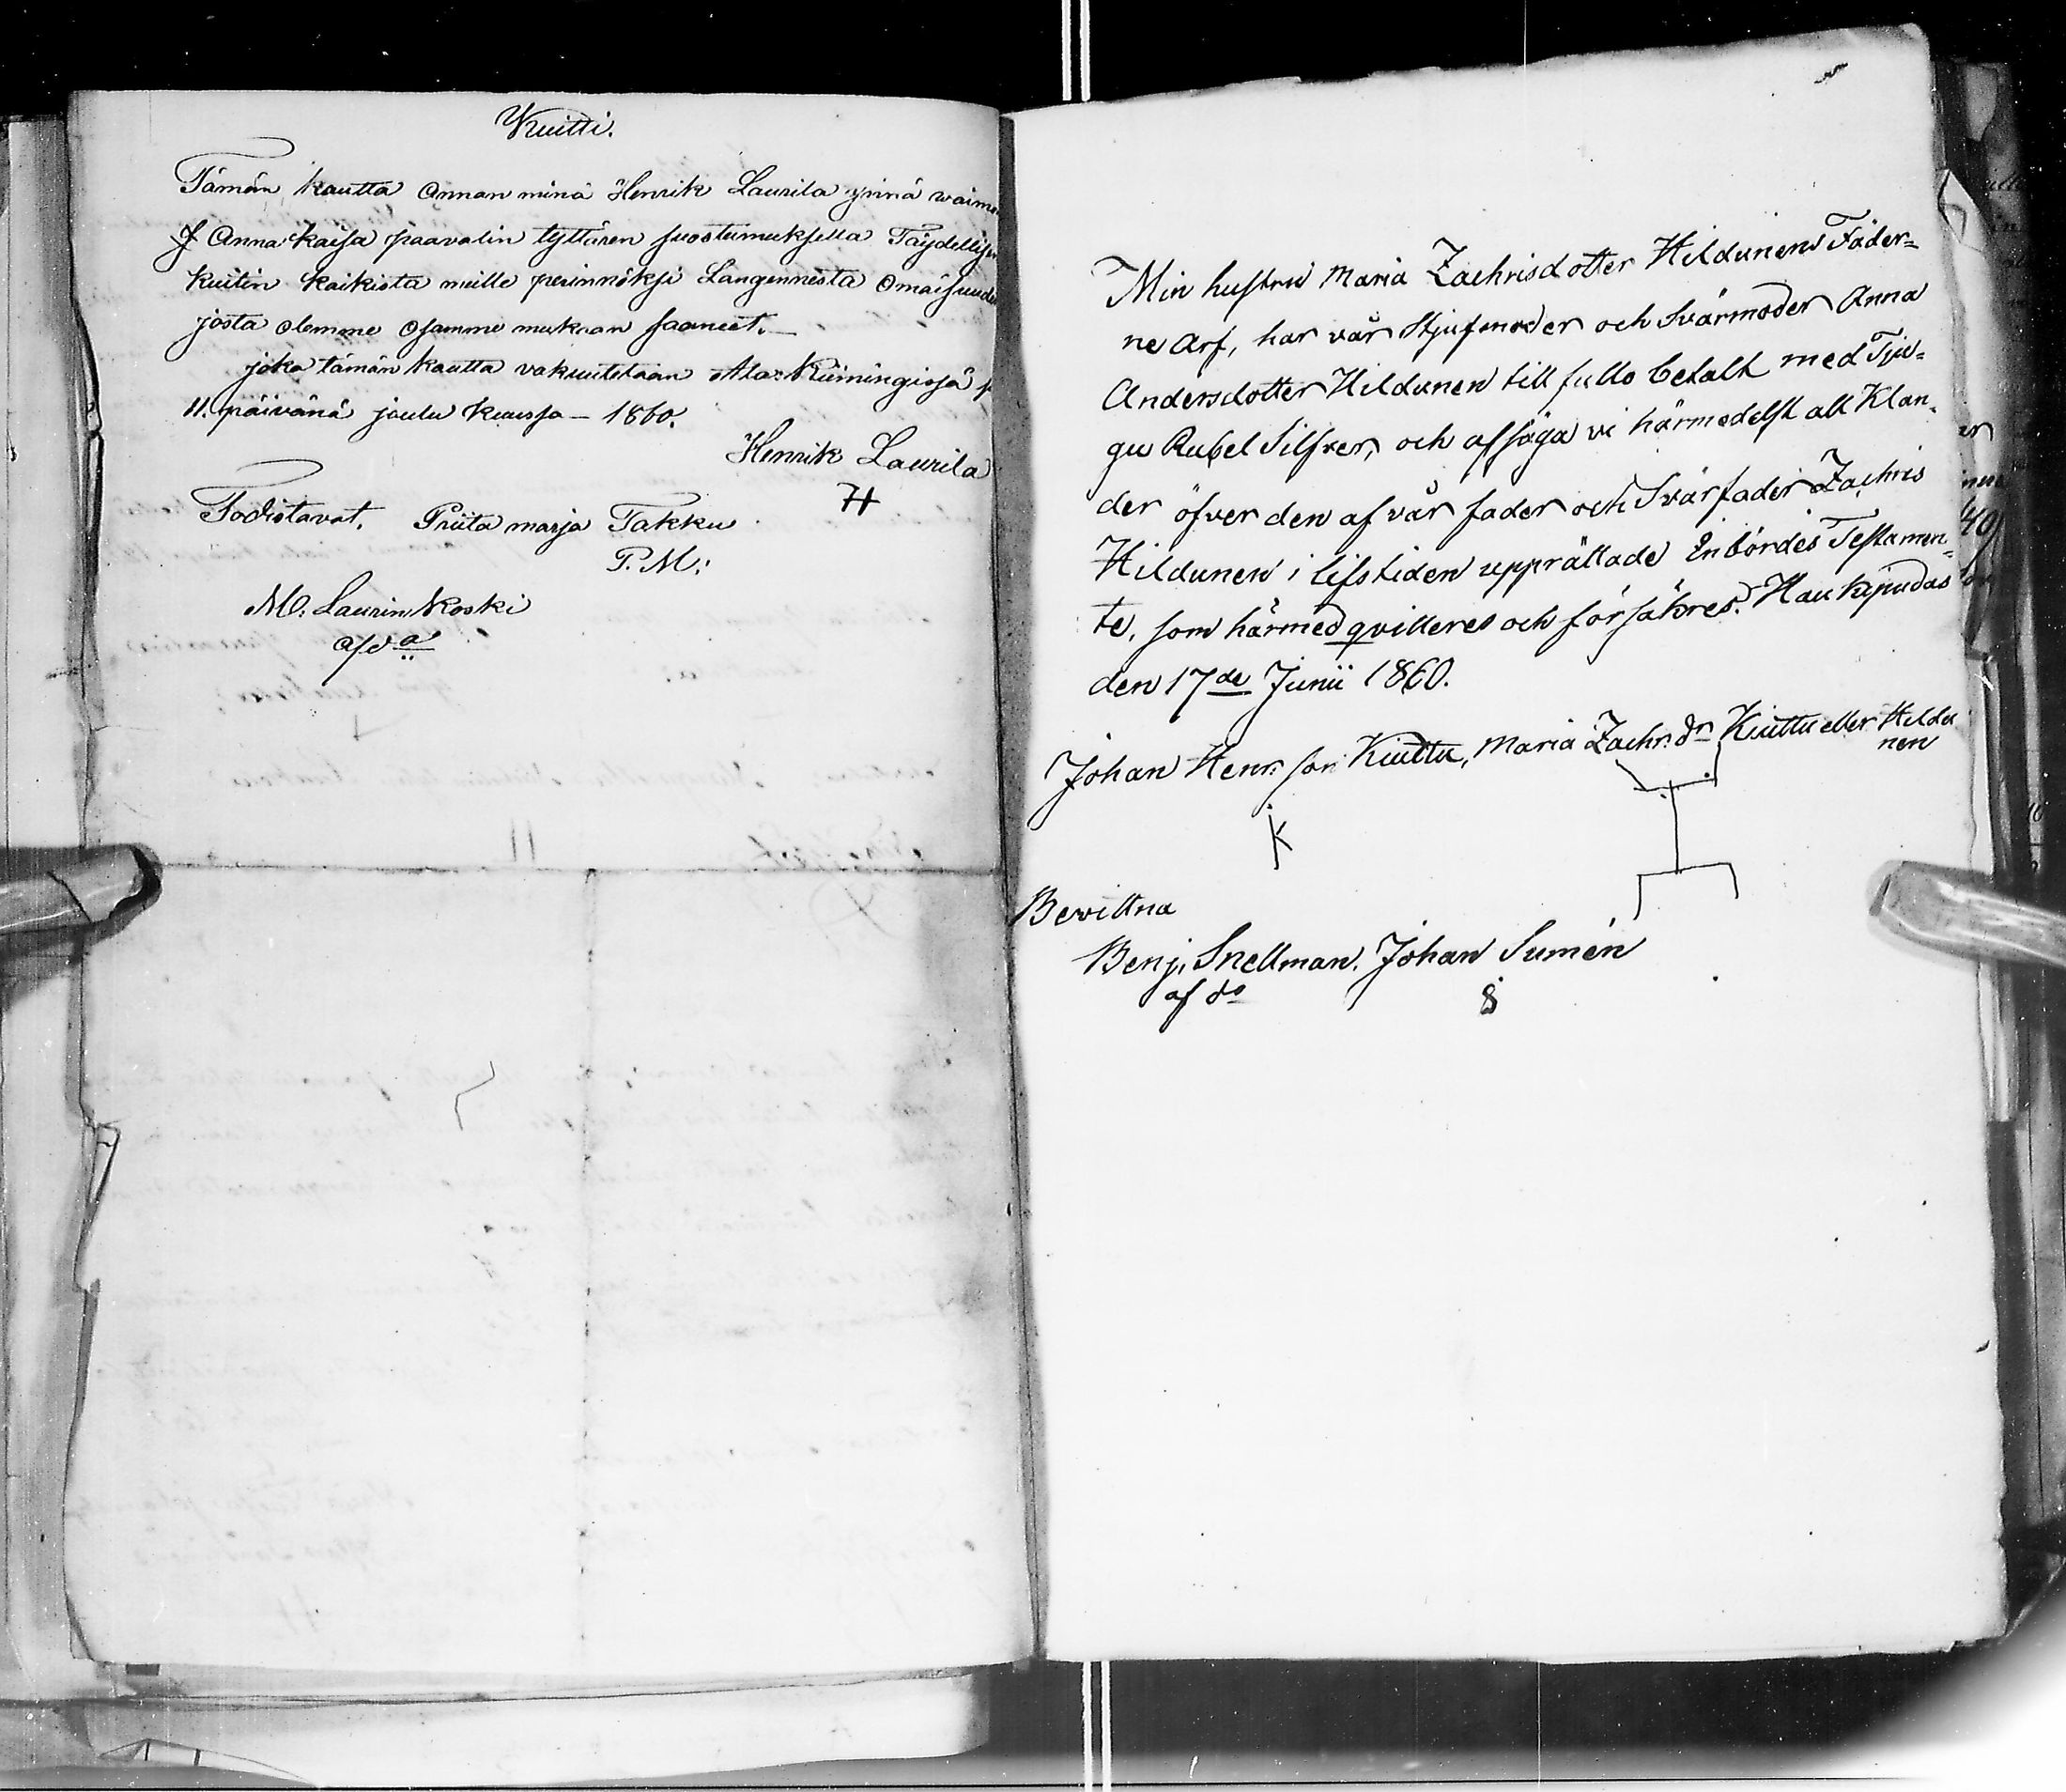 Kuitti.
Tämän kautta Annan minä Henrik Laurila ynnä waimo
Anna Kaisa paavalin tyttären suostumuksella Täydellisen
Kuitin Kaikista meille perinnöksi Langennesta Omaisuude
josta olemme Osamme mukaan saaneet.
joka tämän kautta vakuutetaan Ala-Kiimingissä
11. päivänä joulu kuussa - 1860.
Henrik Laurila
H
Todistavat. Priita marja Takku
P. M:
M: Laurin koski
Min hustru Maria Zachrisdotter Hildunens Fäder=
ne Arf, har vår Stjufmoder och Svärmoder Anna
Andersdotter Hildunen till fullo betalt med Tju=
gu Rubel Silfver, och afsäga vi härmedelst all Klan-
der öfver den af vår fader och Svärfader Zachris
Hildunen i lifstiden upprättade Inbördes Testamen=
te, som härmed qvitteres och försäkres. Haukipudas
den 17de Junii 1860.
Johan Henr: son Kiuttu, Maria Zachr: dr Kiuttu eller Hildu
nen
K
Bevittna
Benj. Snellman. Johan Sumén
af do S